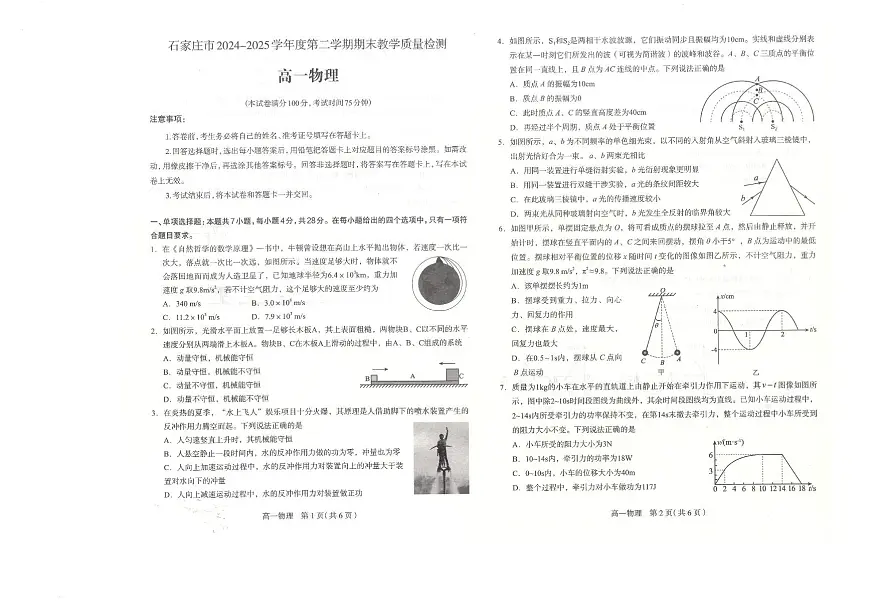 石家庄市 2024-2025 学年度第二学期期末教学质量检测
高一物理
(本试卷满分 100 分,考试时间 75 分钟)
注意事项:
1.答卷前,考生务必将自己的姓名、准考证号填写在答题卡上。
2.回答选择题时,选出每小题答案后,用铅笔把答题卡上对应题目的答案标号涂黑。如需改
动,用橡皮擦干净后,再选涂其他答案标号。回答非选择题时,将答案写在答题卡上,写在本试
卷上无效。
3.考试结束后,将本试卷和答题卡一并交回。
一、单项选择题:本题共7小题,每小题4分,共28分。在每小题给出的四个选项中,只有一项符
合题目要求。
1. 在《自然哲学的数学原理》一书中,牛顿曾设想在高山上水平抛出物体,若速度一次比一
次大,落点就一次比一次远,如图所示。当速度足够大时,物体就不
会落回地面而成为人造卫星了,已知地球半径为6.4×10³km,重力加
速度 g 取9.8m/s²,若不计空气阻力,这个足够大的速度至少约为
A. 340 m/s B. 3.0×10³ m/s
C. 11.2×10³ m/s D. 7.9×10³ m/s
2. 如图所示,光滑水平面上放置一足够长木板A,其上表面粗糙,两物块B、C以不同的水平
速度分别从两端滑上木板A。物块B、C在木板A上滑动的过程中,由A、B、C组成的系统
A. 动量守恒,机械能守恒
B. 动量守恒,机械能不守恒
C. 动量不守恒,机械能守恒
D. 动量不守恒,机械能不守恒
B A C
3. 在炎热的夏季,“水上飞人”娱乐项目十分火爆,其原理是人借助脚下的喷水装置产生的
反冲作用力腾空而起。下列说法正确的是
A. 人匀速竖直上升时,其机械能守恒
B. 人悬空静止一段时间内,水的反冲作用力做的功为零,冲量也为零
C. 人向上加速运动过程中,水的反冲作用力对装置向上的冲量大于装
置对水向下的冲量
D. 人向上减速运动过程中,水的反冲作用力对装置做正功
高一物理 第 1 页(共 6 页)
4. 如图所示,S₁和S₂是两相干水波波源,它们振动同步且振幅均为10cm。实线和虚线分别表
示在某一时刻它们所发出的波(可视为简谐波)的波峰和波谷。A、B、C 三质点的平衡位
置在同一直线上,且 B 点为 AC 连线的中点。下列说法正确的是
A. 质点 A 的振幅为10cm
B. 质点 B 的振幅为0
C. 此时质点 A、C 的竖直高度差为40cm
D. 再经过半个周期,质点 A 处于平衡位置
A
B
C
S₁ S₂
5. 如图所示,a、b 为不同频率的单色细光束,以不同的入射角从空气斜射入玻璃三棱镜中,
出射光恰好合为一束。a、b 两束光相比
A. 用同一装置进行单缝衍射实验,b 光衍射现象更明显
B. 用同一装置进行双缝干涉实验,a 光的条纹间距较大
C. 在此玻璃三棱镜中,a 光的传播速度较小
D. 两束光从同种玻璃射向空气时,b 光发生全反射的临界角较大
a
b
6. 如图甲所示,单摆固定悬点为 O,将可看成质点的摆球拉至 A 点,然后由静止释放,并开
始计时,摆球在竖直平面内的 A、C 之间来回摆动,摆角 θ 小于5°,B 点为运动中的最低
位置。摆球相对平衡位置的位移 x 随时间 t 变化的图像如图乙所示,不计空气阻力,重力
加速度 g 取9.8 m/s²,π²=9.8。下列说法正确的是
A. 该单摆摆长约为1m
B. 摆球受到重力、拉力、向心
力、回复力的作用
C. 摆球在 B 点处,速度最大,
回复力也最大
D. 在0.5~1s内,摆球从 C 点向
B 点运动
O
θ
C B A
甲
x/cm
4
0 1 2 t/s
-4
乙
7. 质量为1kg的小车在水平的直轨道上由静止开始在牵引力作用下运动,其 v-t 图像如图所
示,图中除2~10s时间段图线为曲线外,其余时间段图线均为直线。已知小车运动过程中,
2~14s内所受牵引力的功率保持不变,在第14s末撤去牵引力,整个运动过程中小车所受到
的阻力大小不变。下列说法正确的是
A. 小车所受的阻力大小为3N
B. 10~14s内,牵引力的功率为18W
C. 0~10s内,小车的位移大小为40m
D. 整个过程中,牵引力对小车做功为117J
v/(m·s⁻¹)
6
3
0 2 4 6 8 10 12 14 16 18 t/s
高一物理 第 2 页(共 6 页)